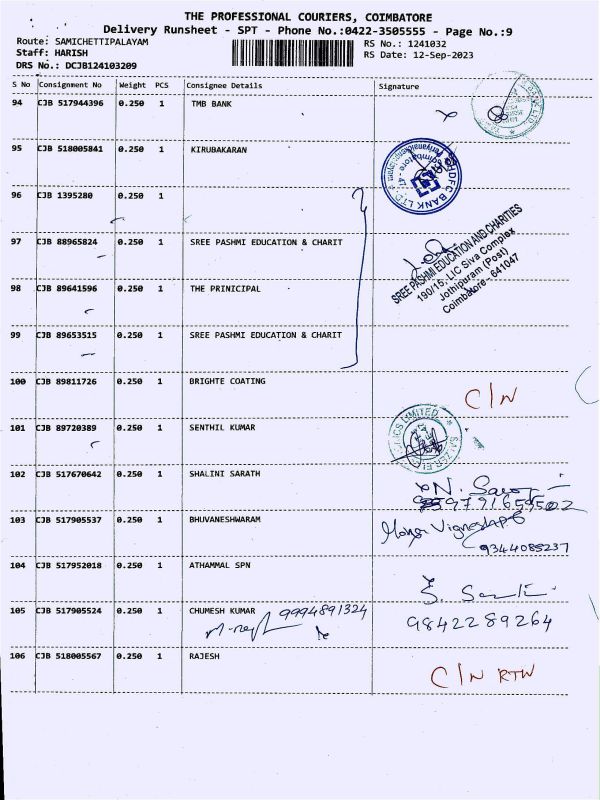 THE PROFESSIONAL COURIERS, COIMBATORE
Delivery Runsheet - SPT - Phone No.:0422-3505555 - Page No.:9
Route: SAMICHETTIPALAYAM
RS No.: 1241032
Staff: HARISH
RS Date: 12-Sep-2023
DRS No.: DCJB124103209
S No Consignment No Weight PCS Consignee Details Signature
94 CJB 517944396 0.250 1 TMB BANK
95 CJB 518005841 0.250 1 KIRUBAKARAN
HDFC BANK LTD
96 CJB 1395280 0.250 1
97 CJB 88965824 0.250 1 SREE PASHMI EDUCATION & CHARIT
SREE PASHMI EDUCATION AND CHARITIES
190/15, LIC Siva Complex
Jothipuram (Post)
Coimbatore - 641047
98 CJB 89641596 0.250 1 THE PRINICIPAL
99 CJB 89653515 0.250 1 SREE PASHMI EDUCATION & CHARIT
100 CJB 89811726 0.250 1 BRIGHTE COATING
C/N
101 CJB 89720389 0.250 1 SENTHIL KUMAR
102 CJB 517670642 0.250 1 SHALINI SARATH
103 CJB 517905537 0.250 1 BHUVANESHWARAM
9344085237
104 CJB 517952018 0.250 1 ATHAMMAL SPN
105 CJB 517905524 0.250 1 CHUMESH KUMAR 9994891324
9842289264
106 CJB 518005567 0.250 1 RAJESH
C/N RTN